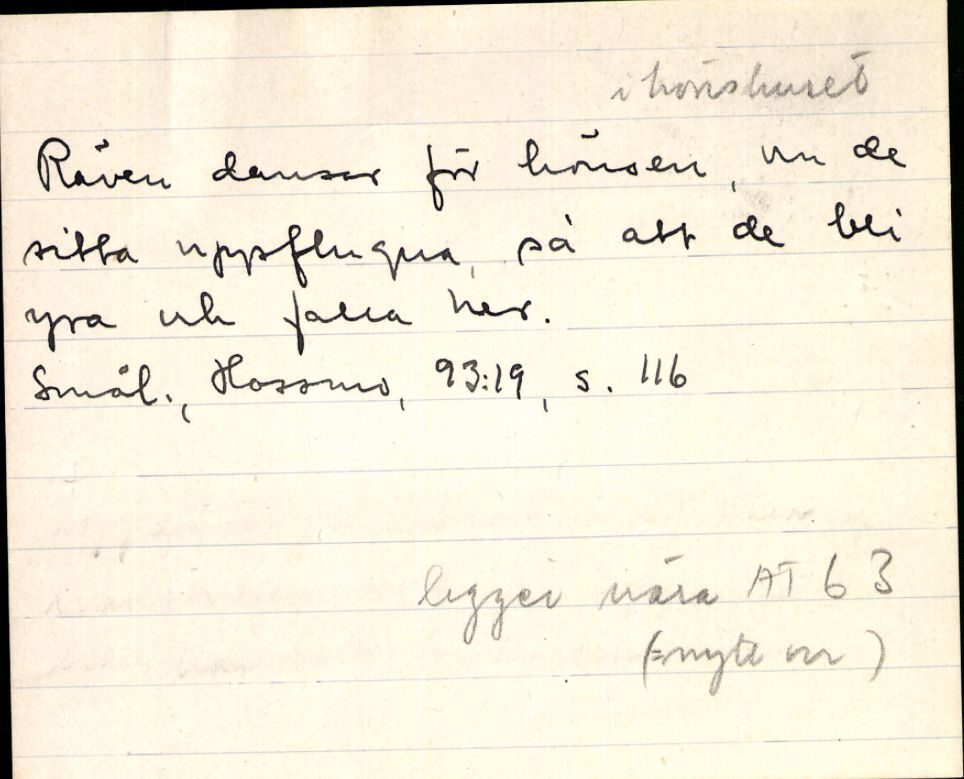 i hönshuset
Räven dansar för hönsen, när de
sitta uppflugna, så att de bli
yra och falla ner.
Smål., Hossmo, 93:19, s. 116
ligger nära AT 63
(= myte nr )